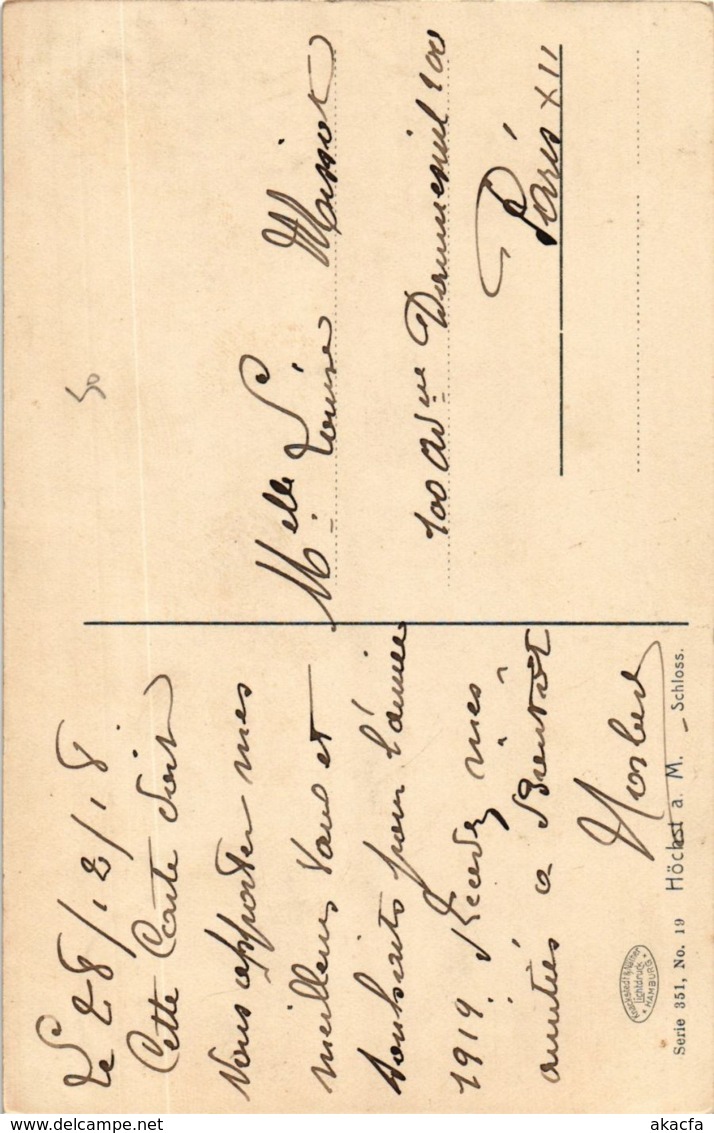 Le 28/12/18.
Cette Carte doit
vous apporter mes
meilleurs vœux et
souhaits pour l'année
1919. Recevez mes
amitiés a Bientôt
Melle Louise
100 Avnue Daumesnil 100
Paris XII
50
Knackstedt & Näther
Lichtdruck
HAMBURG
Serie 351, No. 19 Höchst a. M. – Schloss.
akacfa
delcampe.net